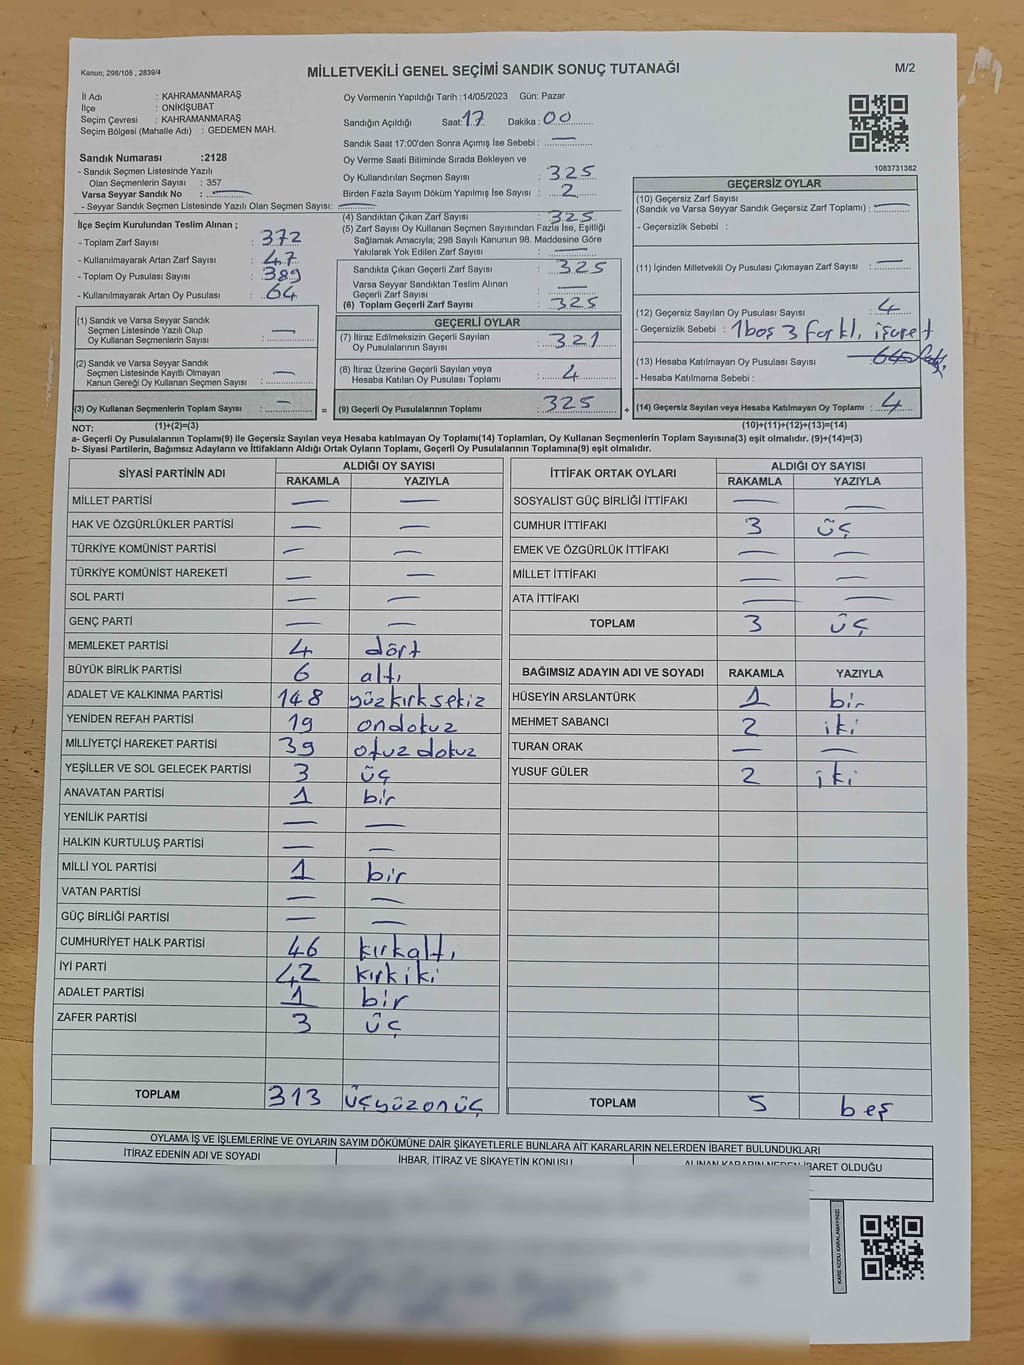 Kanun; 298/105 , 2839/4
MİLLETVEKİLİ GENEL SEÇİMİ SANDIK SONUÇ TUTANAĞI
M/2
İl Adı : KAHRAMANMARAŞ
İlçe : ONİKİŞUBAT
Seçim Çevresi : KAHRAMANMARAŞ
Seçim Bölgesi (Mahalle Adı) : GEDEMEN MAH.
Sandık Numarası :2128
- Sandık Seçmen Listesinde Yazılı
Olan Seçmenlerin Sayısı : 357
Varsa Seyyar Sandık No : —
- Seyyar Sandık Seçmen Listesinde Yazılı Olan Seçmen Sayısı: —
Oy Vermenin Yapıldığı Tarih :14/05/2023 Gün: Pazar
Sandığın Açıldığı Saat: 17 Dakika : 00
Sandık Saat 17:00'den Sonra Açımış İse Sebebi : —
Oy Verme Saati Bitiminde Sırada Bekleyen ve
Oy Kullandırılan Seçmen Sayısı : 325
Birden Fazla Sayım Döküm Yapılmış İse Sayısı : 2
1083731382
İlçe Seçim Kurulundan Teslim Alınan ;
- Toplam Zarf Sayısı : 372
- Kullanılmayarak Artan Zarf Sayısı : 47
- Toplam Oy Pusulası Sayısı : 389
- Kullanılmayarak Artan Oy Pusulası : 64
(1) Sandık ve Varsa Seyyar Sandık
Seçmen Listesinde Yazılı Olup
Oy Kullanan Seçmenlerin Sayısı : —
(2) Sandık ve Varsa Seyyar Sandık
Seçmen Listesinde Kayıtlı Olmayan
Kanun Gereği Oy Kullanan Seçmen Sayısı : —
(3) Oy Kullanan Seçmenlerin Toplam Sayısı : — =
(4) Sandıktan Çıkan Zarf Sayısı : 325
(5) Zarf Sayısı Oy Kullanan Seçmen Sayısından Fazla İse, Eşitliği
Sağlamak Amacıyla, 298 Sayılı Kanunun 98. Maddesine Göre
Yakılarak Yok Edilen Zarf Sayısı : —
Sandıkta Çıkan Geçerli Zarf Sayısı : 325
Varsa Seyyar Sandıktan Teslim Alınan
Geçerli Zarf Sayısı : —
(6) Toplam Geçerli Zarf Sayısı : 325
GEÇERLİ OYLAR
(7) İtiraz Edilmeksizin Geçerli Sayılan
Oy Pusulalarının Sayısı : 321
(8) İtiraz Üzerine Geçerli Sayılan veya
Hesaba Katılan Oy Pusulası Toplamı : 4
(9) Geçerli Oy Pusulalarının Toplamı : 325 +
GEÇERSİZ OYLAR
(10) Geçersiz Zarf Sayısı
(Sandık ve Varsa Seyyar Sandık Geçersiz Zarf Toplamı) : —
- Geçersizlik Sebebi :
(11) İçinden Milletvekili Oy Pusulası Çıkmayan Zarf Sayısı : —
(12) Geçersiz Sayılan Oy Pusulası Sayısı : 4
- Geçersizlik Sebebi : 1boş 3 farkl, işaret
(13) Hesaba Katılmayan Oy Pusulası Sayısı
- Hesaba Katılmama Sebebi :
(14) Geçersiz Sayılan veya Hesaba Katılmayan Oy Toplamı : 4
NOT: (1)+(2)=(3) (10)+(11)+(12)+(13)=(14)
a- Geçerli Oy Pusulalarının Toplamı(9) ile Geçersiz Sayılan veya Hesaba katılmayan Oy Toplamı(14) Toplamları, Oy Kullanan Seçmenlerin Toplam Sayısına(3) eşit olmalıdır. (9)+(14)=(3)
b- Siyasi Partilerin, Bağımsız Adayların ve İttifakların Aldığı Ortak Oyların Toplamı, Geçerli Oy Pusulalarının Toplamına(9) eşit olmalıdır.
SİYASİ PARTİNİN ADI ALDIĞI OY SAYISI
RAKAMLA YAZIYLA
MİLLET PARTİSİ — —
HAK VE ÖZGÜRLÜKLER PARTİSİ — —
TÜRKİYE KOMÜNİST PARTİSİ — —
TÜRKİYE KOMÜNİST HAREKETİ — —
SOL PARTİ — —
GENÇ PARTİ — —
MEMLEKET PARTİSİ 4 dört
BÜYÜK BİRLİK PARTİSİ 6 altı
ADALET VE KALKINMA PARTİSİ 148 yüzkırksekiz
YENİDEN REFAH PARTİSİ 19 ondokuz
MİLLİYETÇİ HAREKET PARTİSİ 39 otuz dokuz
YEŞİLLER VE SOL GELECEK PARTİSİ 3 üç
ANAVATAN PARTİSİ 1 bir
YENİLİK PARTİSİ — —
HALKIN KURTULUŞ PARTİSİ — —
MİLLİ YOL PARTİSİ 1 bir
VATAN PARTİSİ — —
GÜÇ BİRLİĞİ PARTİSİ — —
CUMHURİYET HALK PARTİSİ 46 kırkaltı
İYİ PARTİ 42 kırkiki
ADALET PARTİSİ 1 bir
ZAFER PARTİSİ 3 üç
TOPLAM 313 üçyüzonüç
İTTİFAK ORTAK OYLARI ALDIĞI OY SAYISI
RAKAMLA YAZIYLA
SOSYALİST GÜÇ BİRLİĞİ İTTİFAKI — —
CUMHUR İTTİFAKI 3 üç
EMEK VE ÖZGÜRLÜK İTTİFAKI — —
MİLLET İTTİFAKI — —
ATA İTTİFAKI — —
TOPLAM 3 üç
BAĞIMSIZ ADAYIN ADI VE SOYADI RAKAMLA YAZIYLA
HÜSEYİN ARSLANTÜRK 1 bir
MEHMET SABANCI 2 iki
TURAN ORAK — —
YUSUF GÜLER 2 iki
TOPLAM 5 beş
OYLAMA İŞ VE İŞLEMLERİNE VE OYLARIN SAYIM DÖKÜMÜNE DAİR ŞİKAYETLERLE BUNLARA AİT KARARLARIN NELERDEN İBARET BULUNDUKLARI
İTİRAZ EDENİN ADI VE SOYADI İHBAR, İTİRAZ VE ŞİKAYETİN KONUSU ALINAN KARARIN NEDEN İBARET OLDUĞU
KARE KODU KARALAMAYINIZ!